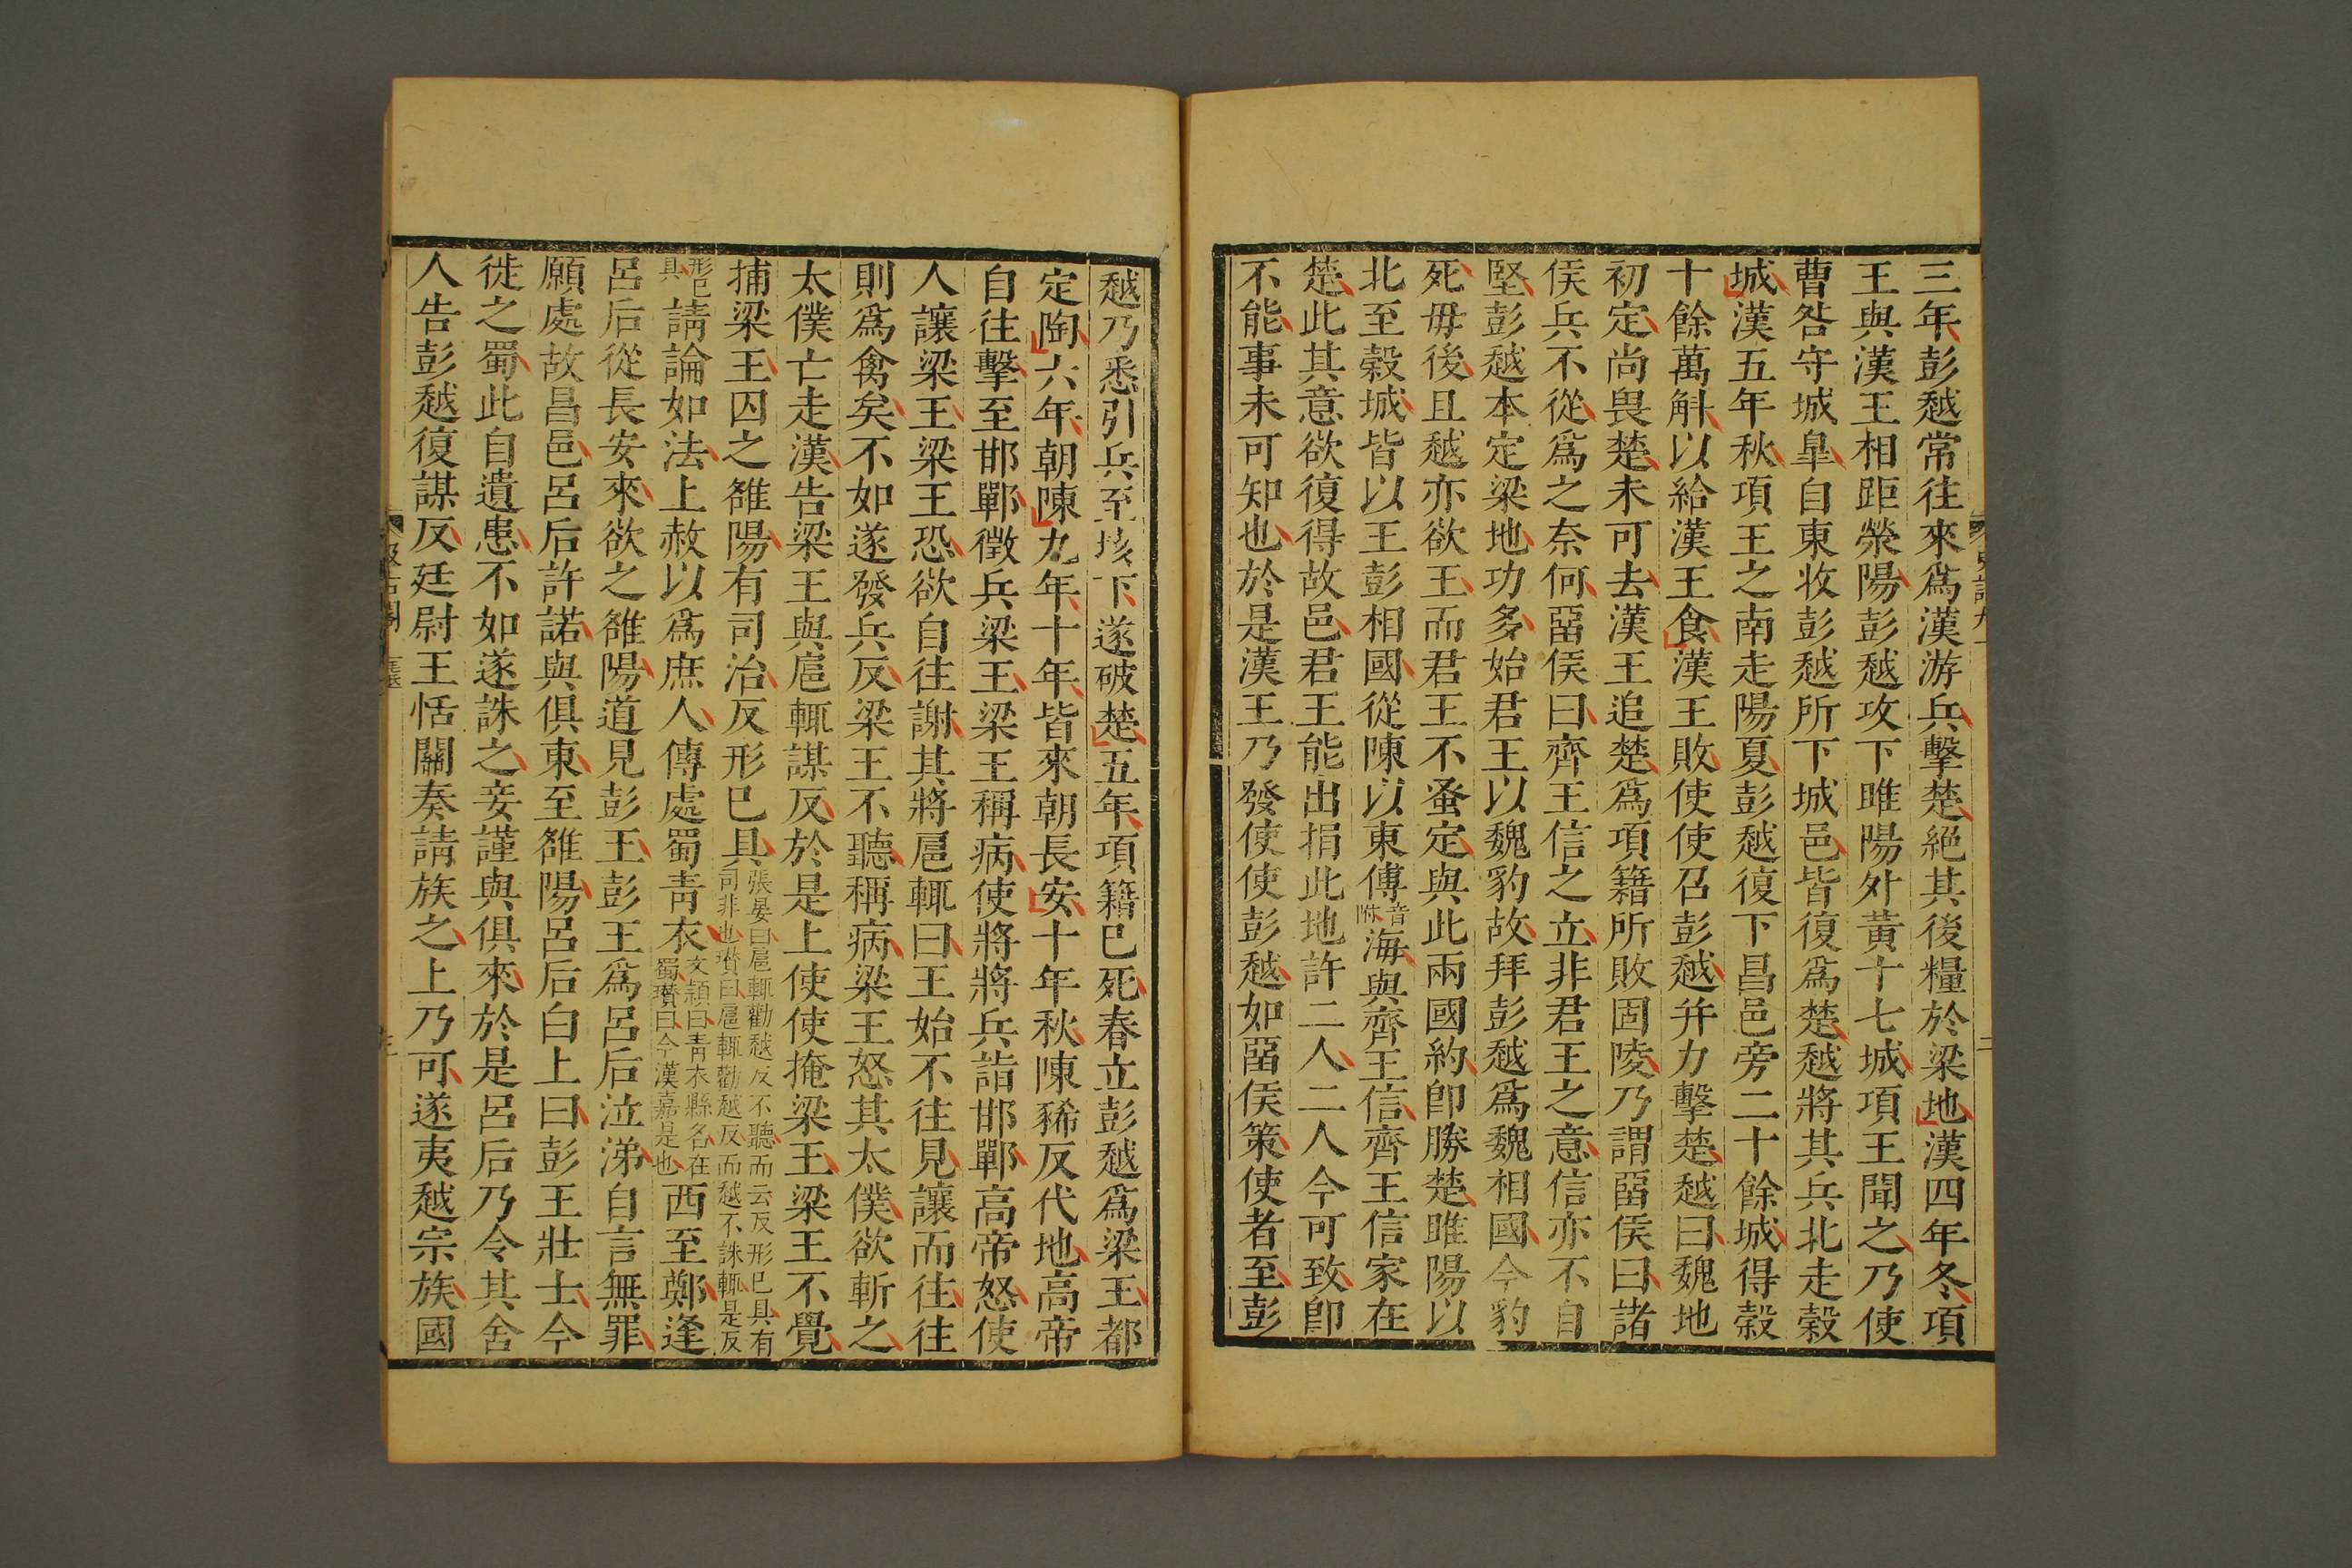 三年彭越常往來爲漢游兵擊楚絕其後糧於梁地漢四年冬項
王與漢王相距滎陽彭越攻下睢陽外黃十七城項王聞之乃使
曹咎守城皐自東收彭越所下城邑皆復爲楚越將其兵北走穀
城漢五年秋項王之南走陽夏彭越復下昌邑旁二十餘城得穀
十餘萬斛以給漢王食漢王敗使使召彭越并力擊楚越曰魏地
初定尚畏楚未可去漢王追楚爲項籍所敗固陵乃謂留侯曰諸
侯兵不從爲之奈何留侯曰齊王信之立非君王之意信亦不自
堅彭越本定梁地功多始君王以魏豹故拜彭越爲魏相國今豹
死毋後且越亦欲王而君王不蚤定與此兩國約卽勝楚睢陽以
北至穀城皆以王彭相國從陳以東傅音附海與齊王信齊王信家在
楚此其意欲復得故邑君王能出捐此地許二人二人今可致卽
不能事未可知也於是漢王乃發使使彭越如留侯策使者至彭
越乃悉引兵至垓下遂破楚五年項籍已死春立彭越爲梁王都
定陶六年朝陳九年十年皆來朝長安十年秋陳豨反代地高帝
自往擊至邯鄲徵兵梁王梁王稱病使將將兵詣邯鄲高帝怒使
人讓梁王梁王恐欲自往謝其將扈輒曰王始不往見讓而往往
則爲禽矣不如遂發兵反梁王不聽稱病梁王怒其太僕欲斬之
太僕亡走漢告梁王與扈輒謀反於是上使使掩梁王梁王不覺
捕梁王囚之雒陽有司治反形已具張晏曰扈輒勸越反不聽而云反形已具有司非也瓚曰扈輒勸越反而越不誅輒是反
形已具請論如法上赦以爲庶人傳處蜀青衣文穎曰青衣縣名在蜀瓚曰今漢嘉是也西至鄭逢
呂后從長安來欲之雒陽道見彭王彭王爲呂后泣涕自言無罪
願處故昌邑呂后許諾與俱東至雒陽呂后白上曰彭王壯士今
徙之蜀此自遺患不如遂誅之妾謹與俱來於是呂后乃令其舍
人告彭越復謀反廷尉王恬關奏請族之上乃可遂夷越宗族國